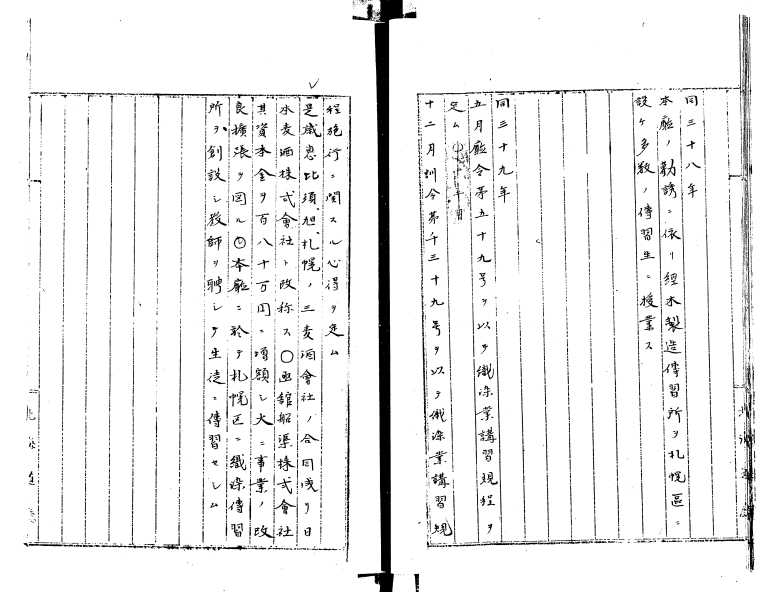 同三十八年
本廳ノ勸誘ニ依リ經木製造傳習所ヲ札幌區ニ
設ケ多數ノ傳習生ニ授業ス
同三十九年
五月廳令第五十九号ヲ以テ織染業講習規程ヲ
定ム
十二月訓令第千三十九号ヲ以テ織染業講習規
程施行ニ関スル心得ヲ定ム
是歳恵比須、旭、札幌ノ三麦酒會社ノ合同成リ日
本麦酒株式會社ト改称ス〇函館船渠株式會社
其資本金ヲ百八十万円ニ増額シ大ニ事業ノ改
良擴張ヲ図ル〇本廳ニ於テ札幌区ニ織染傳習
所ヲ創設シ教師ヲ聘シテ生徒ニ傳習セシム